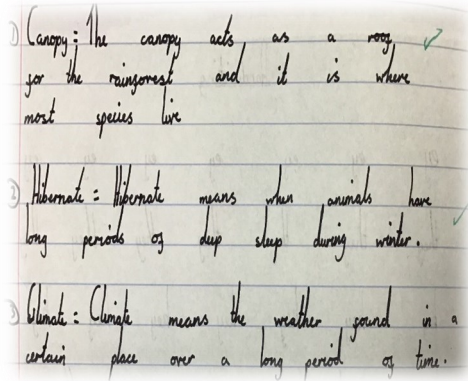 1) Canopy: The canopy acts as a roof
for the rainforest and it is where
most species live
2) Hibernate = Hibernate means when animals have
long periods of deep sleep during winter.
3) Climate = Climate means the weather found in a
certain place over a long period of time.